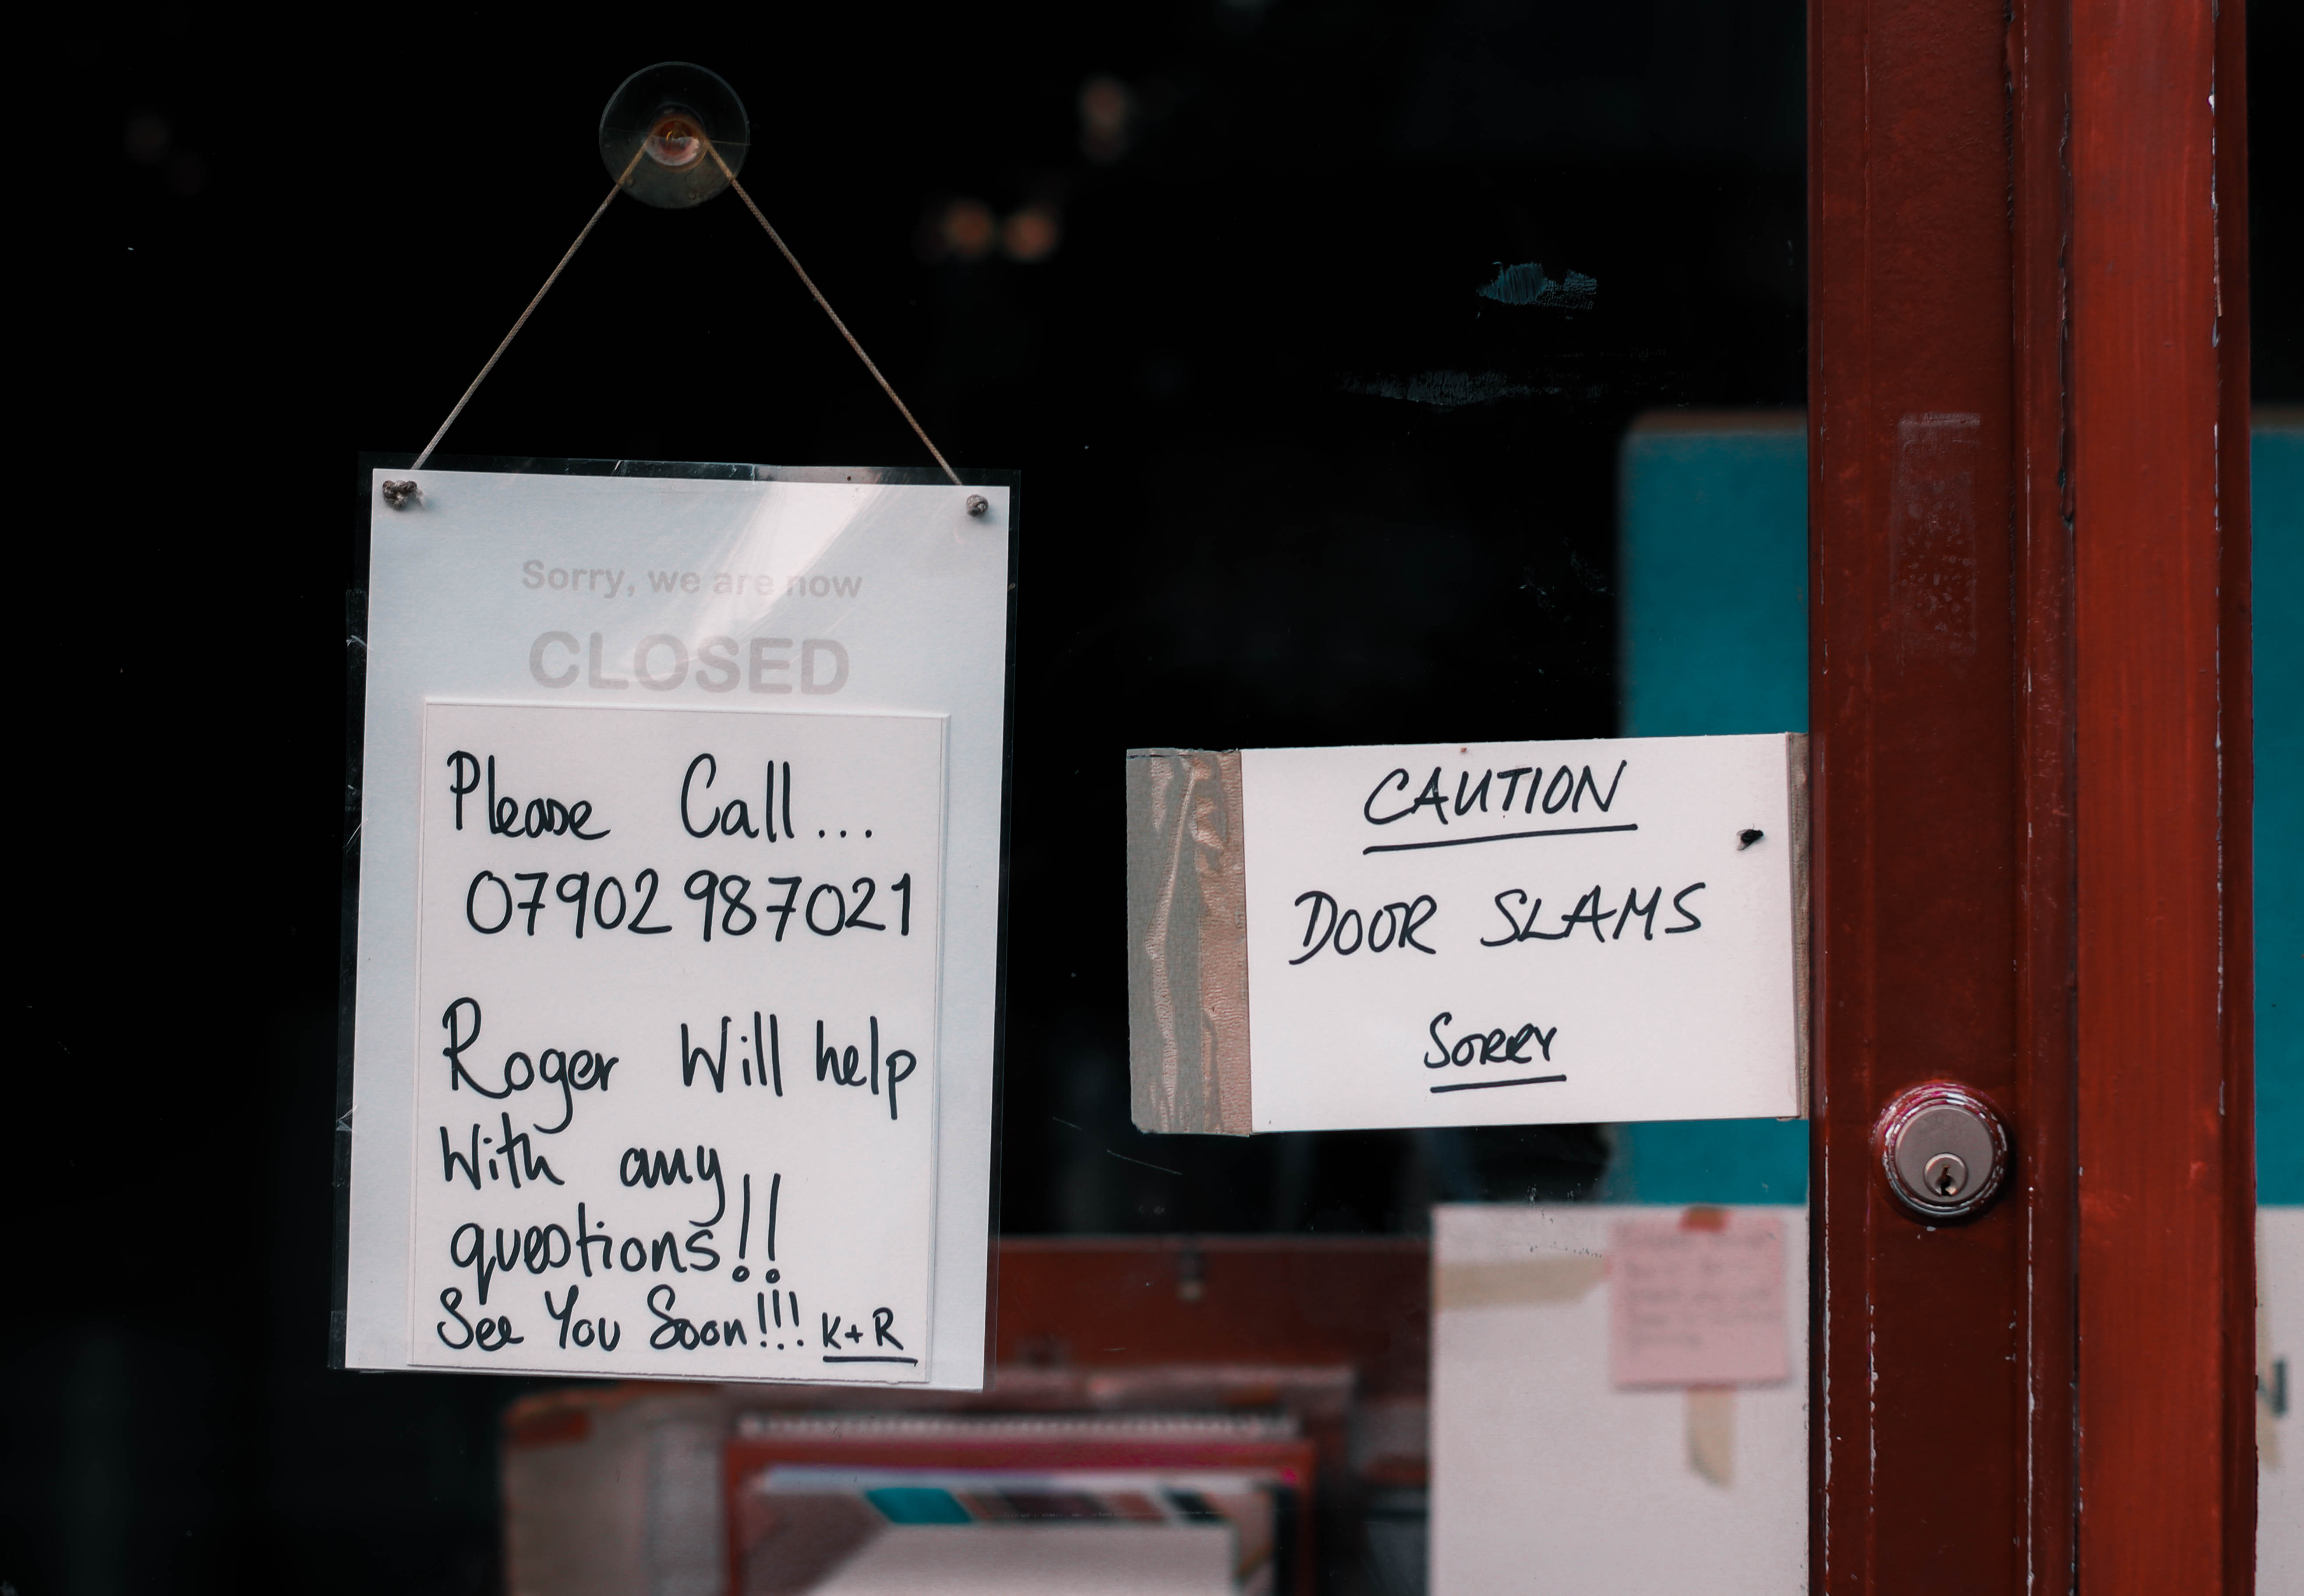 Sorry, we are now
CLOSED
Please Call...
07902 987021
Roger Will help
With any
questions!!
See You Soon!!! K+R
CAUTION
DOOR SLAMS
Sorry